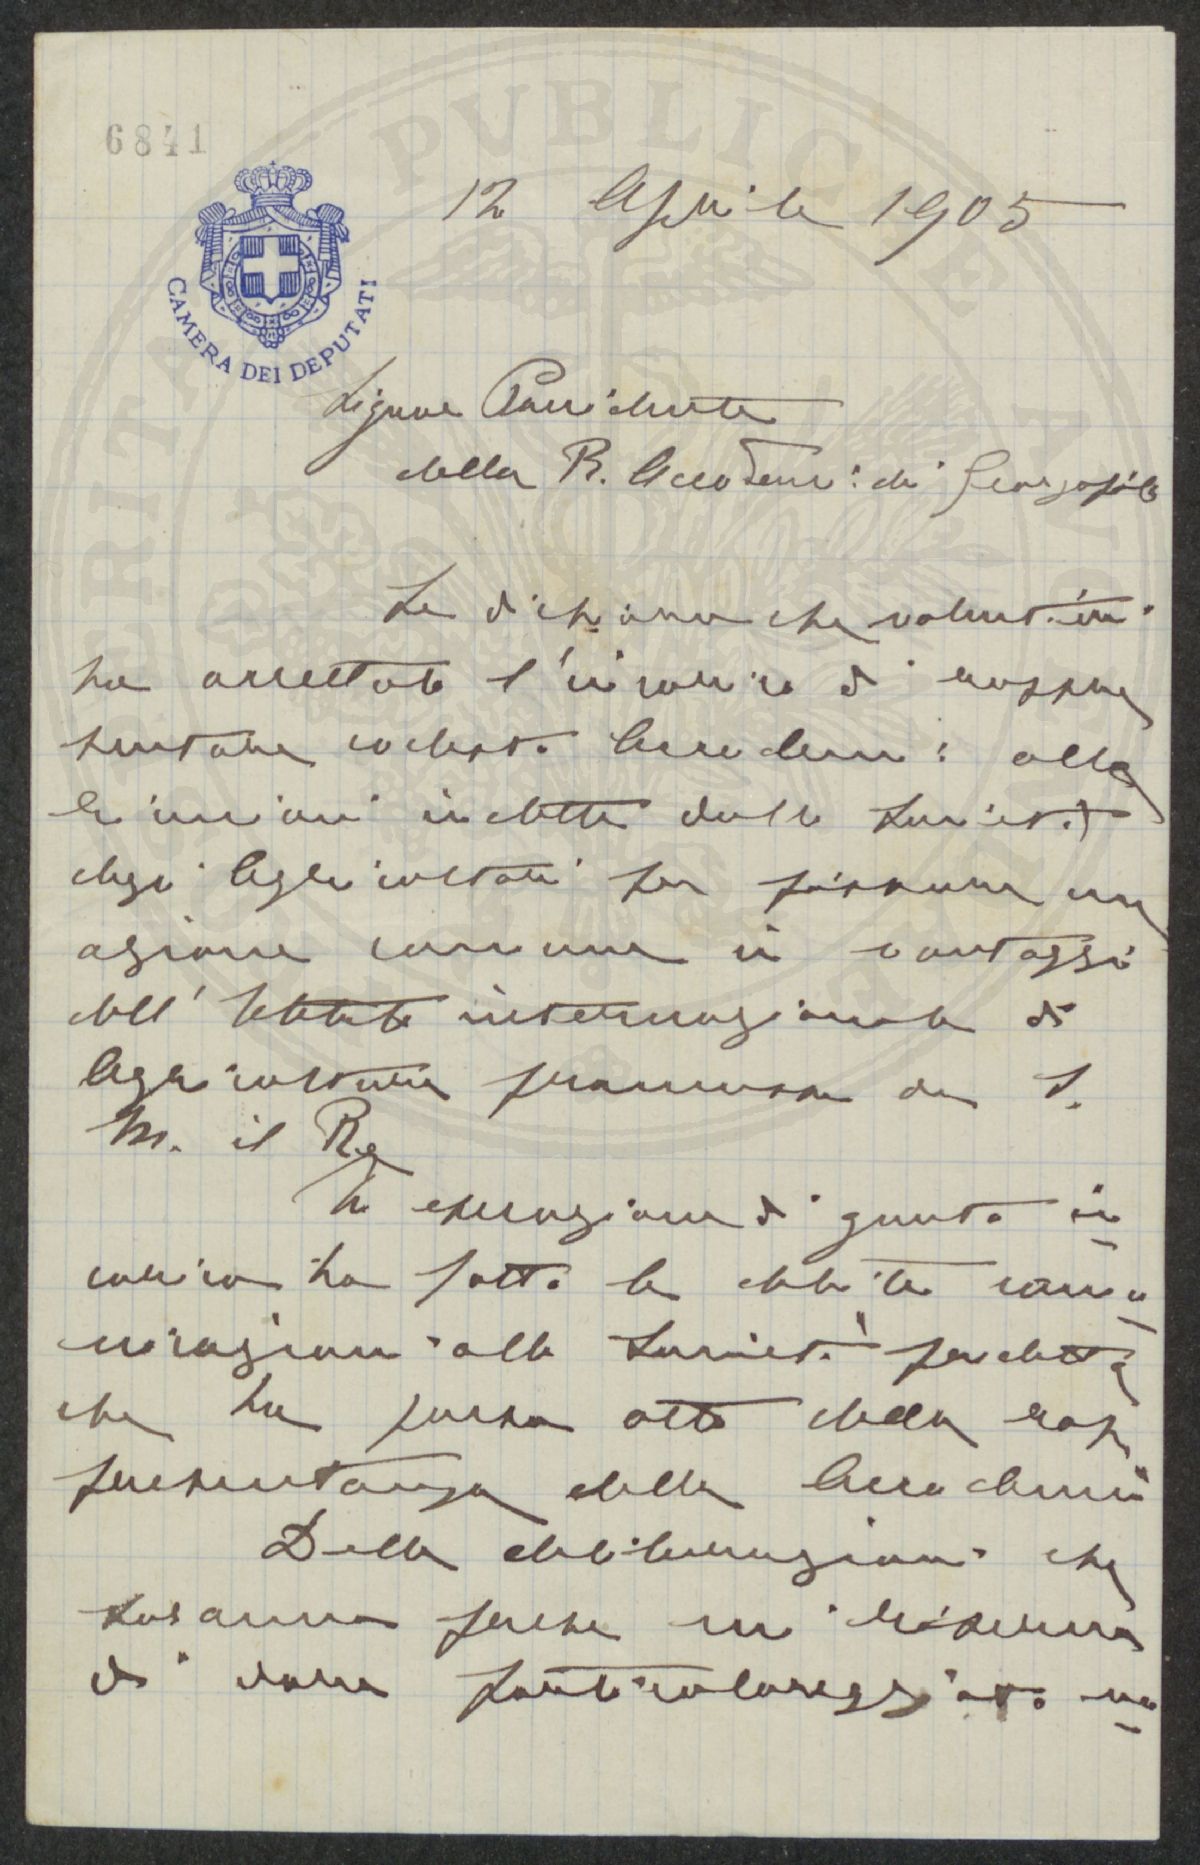 6841
12 Aprile 1905
CAMERA DEI DEPUTATI
Signor Presidente
della R. Accademia dei Georgofili
Le dichiaro che volentieri
ho accettato l'incarico di rappre
sentare codesta Accademia alle
riunioni indette dalla Società
degli Agricoltori per fissare un
azione comune in vantaggio
dell'Istituto internazionale di
Agricoltura promosso da S.
M. il Re
In esecuzione di questo in
carico ho fatto le debite comu
nicazioni alla Società predetta
che ha preso atto della rap
presentanza della Accademia
Delle deliberazioni che
saranno prese mi riserverò
di dare particolareggiata no